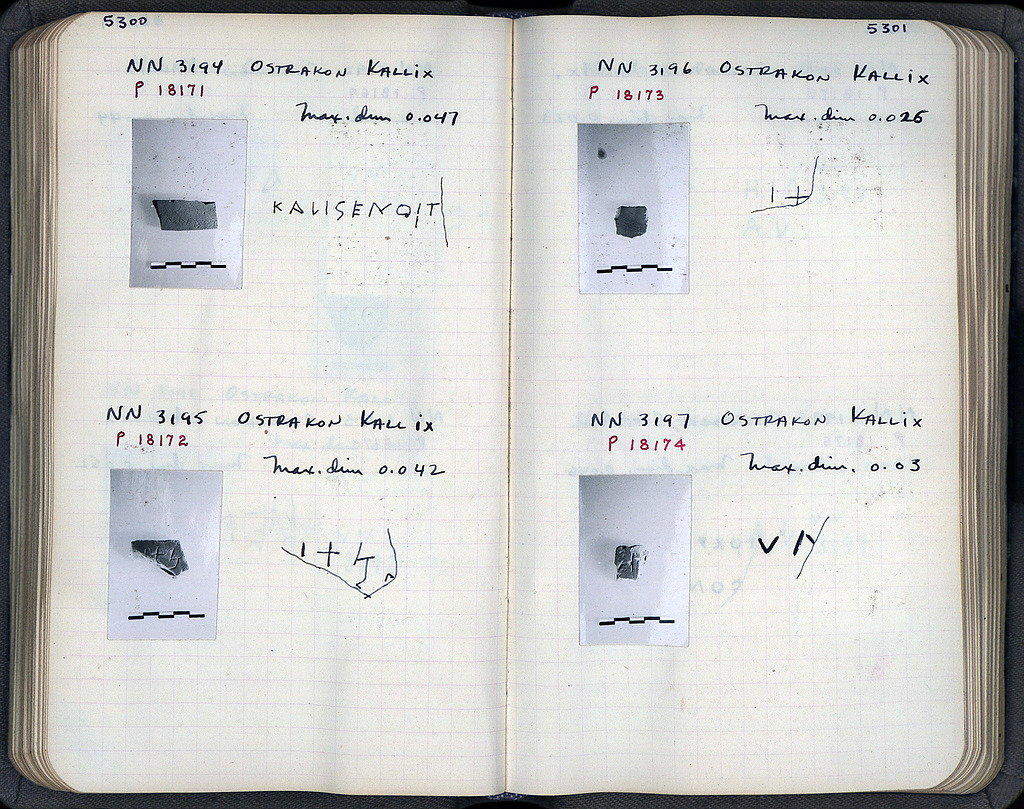 5300
NN 3194 OSTRAKON KALLIX
P 18171
Max. dim 0.047
KALISENOIT
NN 3195 OSTRAKON KALLIX
P 18172
Max. dim 0.042
5301
NN 3196 OSTRAKON KALLIX
P 18173
Max. dim 0.026
NN 3197 OSTRAKON KALLIX
P 18174
Max. dim. 0.03